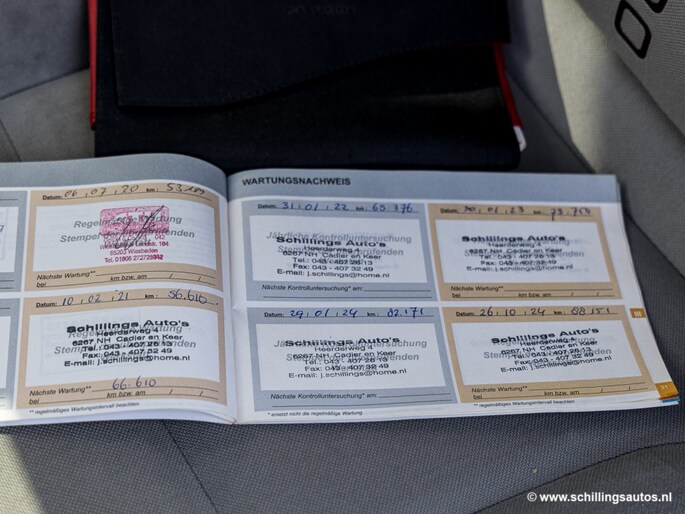 WARTUNGSNACHWEIS
Datum: 06.07.20 km: 53.189
Regelmäßige Wartung
55203 Wiesbaden
Nächste Wartung**
bei km bzw. am / /
Datum: 10.02.21 km: 56.610
Schillings Auto's
Heerderweg 4
6267 NH Cadier en Keer
Tel.: 043 - 407 26 13
Fax: 043 - 407 32 49
E-mail: j.schillings@home.nl
66.610
Nächste Wartung**
bei km bzw. am / /
** regelmäßiges Wartungsintervall beachten
Datum: 31.01.22 km: 65.376
Jährliche Kontrolluntersuchung
Schillings Auto's
Heerderweg 4
6267 NH Cadier en Keer
Tel.: 043 - 407 26 13
Fax: 043 - 407 32 49
E-mail: j.schillings@home.nl
Nächste Kontrolluntersuchung* am:
Datum: 30.01.23 km: 73.753
Schillings Auto's
Heerderweg 4
6267 NH Cadier en Keer
Tel.: 043 - 407 26 13
Fax: 043 - 407 32 49
E-mail: j.schillings@home.nl
Nächste Wartung**
bei km bzw. am / /
Datum: 29.01.24 km: 82.171
Schillings Auto's
Heerderweg 4
6267 NH Cadier en Keer
Tel.: 043 - 407 26 13
Fax: 043 - 407 32 49
E-mail: j.schillings@home.nl
Nächste Kontrolluntersuchung* am:
* ersetzt nicht die regelmäßige Wartung
Datum: 26.10.24 km: 88.151
Schillings Auto's
Heerderweg 4
6267 NH Cadier en Keer
Tel.: 043 - 407 26 13
Fax: 043 - 407 32 49
E-mail: j.schillings@home.nl
Nächste Wartung**
bei km bzw. am / /
** regelmäßiges Wartungsintervall beachten
© www.schillingsautos.nl